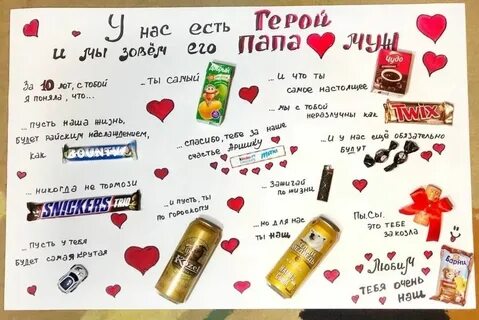 У нас есть Герой
и мы зовём его папа муж
За 10 лет, с тобой
я поняла, что...
...ты самый
Добрый
...и что ты
самое настоящее
Чудо
...пусть наша жизнь,
будет райским наслаждением,
как
BOUNTY
...спасибо, тебе за наше
счастье Аришку
...мы с тобой
неразлучны как
TWIX
...и у нас ещё обязательно
будут
...никогда не тормози
SNICKERS
...и пусть, ты
по гороскопу
Kozel
...зажигай
по жизни
...пусть у тебя
будет самая крутая
...но для нас
ты наш
Пы.Сы.
это тебе
за козла
Любим
тебя очень
наш
Барни